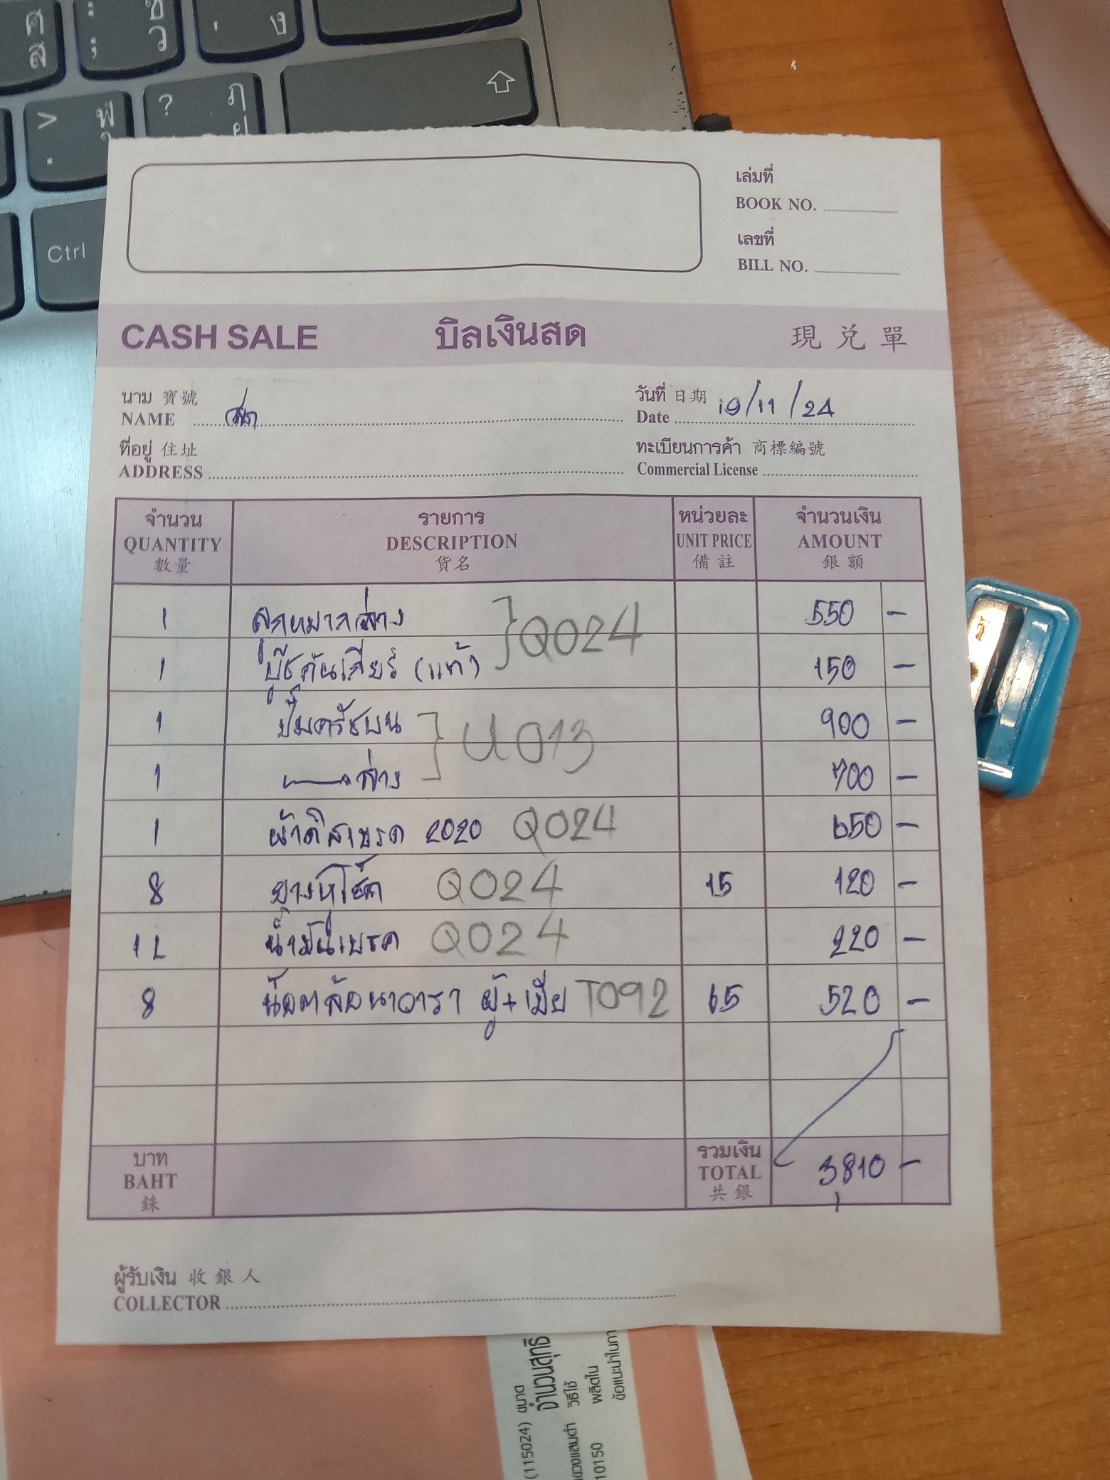 ศ
ส
;
:
ซ
ว
,
ง
>
.
ฬ
?
ฦ
Ctrl
เล่มที่
BOOK NO.
เลขที่
BILL NO.
CASH SALE บิลเงินสด 現兌單
นาม 寶號
NAME
วันที่ 日期
Date 19/11/24
ที่อยู่ 住址
ADDRESS
ทะเบียนการค้า 商標編號
Commercial License
จำนวน
QUANTITY
數量
รายการ
DESCRIPTION
貨名
หน่วยละ
UNIT PRICE
備註
จำนวนเงิน
AMOUNT
銀額
1 ลูกหมากล่าง } Q024 550 -
1 บู๊ชคันเกียร์ (แท้) 150 -
1 ปั๊มครัชบน } U013 900 -
1 ล่าง 700 -
1 ผ้าดิสเบรค 2020 Q024 650 -
8 ยางหูโช้ค Q024 15 120 -
1L น้ำมันเบรค Q024 220 -
8 น็อตล้อนาวารา ผู้+เมีย T092 65 520 -
บาท
BAHT
銖
รวมเงิน
TOTAL
共銀
3810 -
ผู้รับเงิน 收銀人
COLLECTOR
(115024) ขนาด
จำนวนสุทธิ
วิธีใช้
ผลิตใน
10150